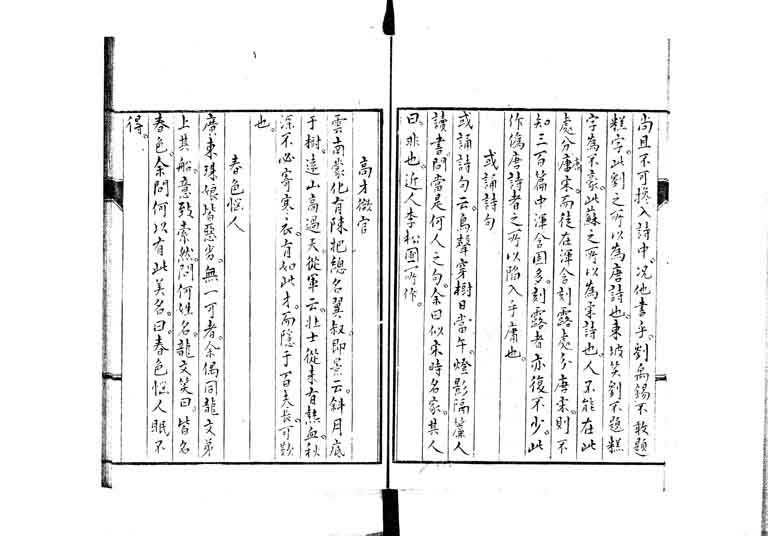 尚且不可攙入詩中。况他書乎。劉禹錫不敢題
糕字。此劉之所以為唐詩也。東坡笑劉不題糕
字為不豪。此蘇之所以為宋詩也。人不能在此
處分唐宋。而徒在渾含刻露處分唐宋。則不
知三百篇中渾含固多。刻露者亦復不少。此
作偽唐詩者之所以陷入乎庸也。
或誦詩句
或誦詩句云。鳥聲穿樹日當午。燈影隔簾人
讀書。問當是何人之句。余曰似宋時名家。其人
曰。非也。近人李松圃所作。
高才微官
雲南蒙化有陳把總名翼叔。即景云。斜月底
于樹。遠山高過天。從軍云。壯士從來有熱血。秋
深不必寄寒衣。有如此才。而隱于百夫長。可歎
也。
春色惱人
廣東珠娘皆惡劣。無一可者。余偶同龍文弟
上其船。意致索然。問何姓名。龍文笑曰。皆名
春色。余問何以有此美名。曰。春色惱人眠不
得。